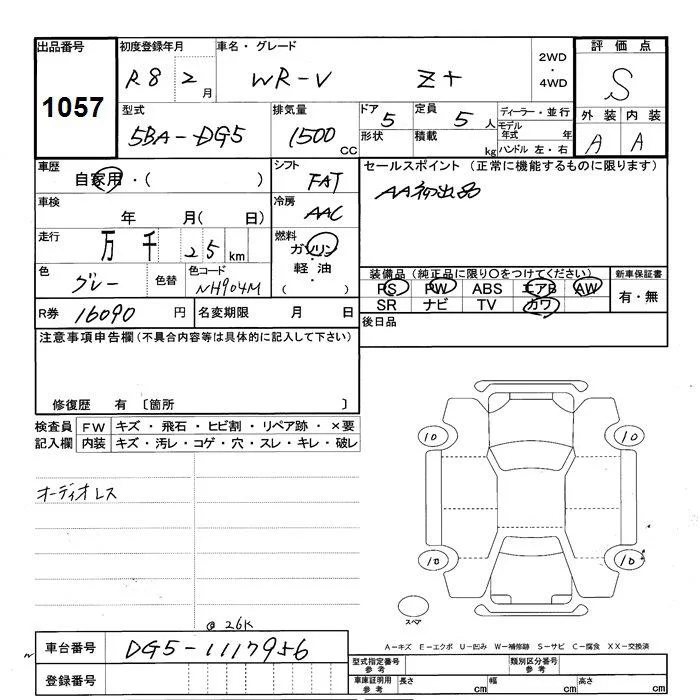 出品番号 初度登録年月 車名・グレード 2WD・4WD 評価点
1057 R8 2月 WR-V Z+ S
型式 排気量 ドア 5 定員 5人 ディーラー・並行 外装 内装
5BA-DG5 1500CC 形状 積載 kg モデル年式 年 ハンドル 左・右 A A
車歴 自家用・( ) シフト FAT セールスポイント (正常に機能するものに限ります)
車検 年 月(日) 冷房 AAC AA初出品
走行 万 千 25km 燃料 ガソリン・軽油・( )
装備品(純正品に限り○をつけてください) 新車保証書
色 グレー 色替 色コード NH904M PS PW ABS エアB AW 有・無
SR ナビ TV カワ
R券 16090円 名変期限 月 日 後日品
注意事項申告欄(不具合内容等は具体的に記入して下さい)
修復歴 有 〔箇所 〕
検査員 FW キズ・飛石・ヒビ割・リペア跡・×要
記入欄 内装 キズ・汚レ・コゲ・穴・スレ・キレ・破レ
10 10
オーディオレス
10 10
スペア
@ 26K
A-キズ E-エクボ U-凹み W-補修跡 S-サビ C-腐食 XX-交換済
車台番号 DG5-1117956
型式指定番号 参考 類別区分番号 参考
登録番号 車庫証明用 参考 長さ cm 幅 cm 高さ cm